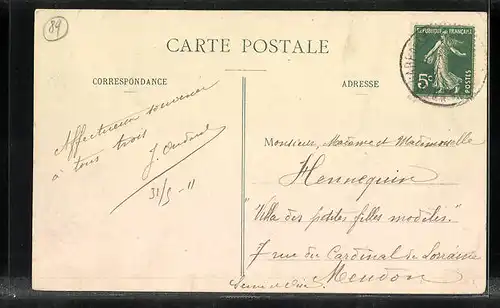 89
CARTE POSTALE
CORRESPONDANCE
ADRESSE
REPUBLIQUE FRANÇAISE
5c
POSTES
Affectueux souvenir
à tous trois
31/5-11
Monsieur, Madame et Mademoiselle
Hennequin
"Villa des petites filles modèles"
7 rue du Cardinal de Lorraine
Meudon
Seine et Oise